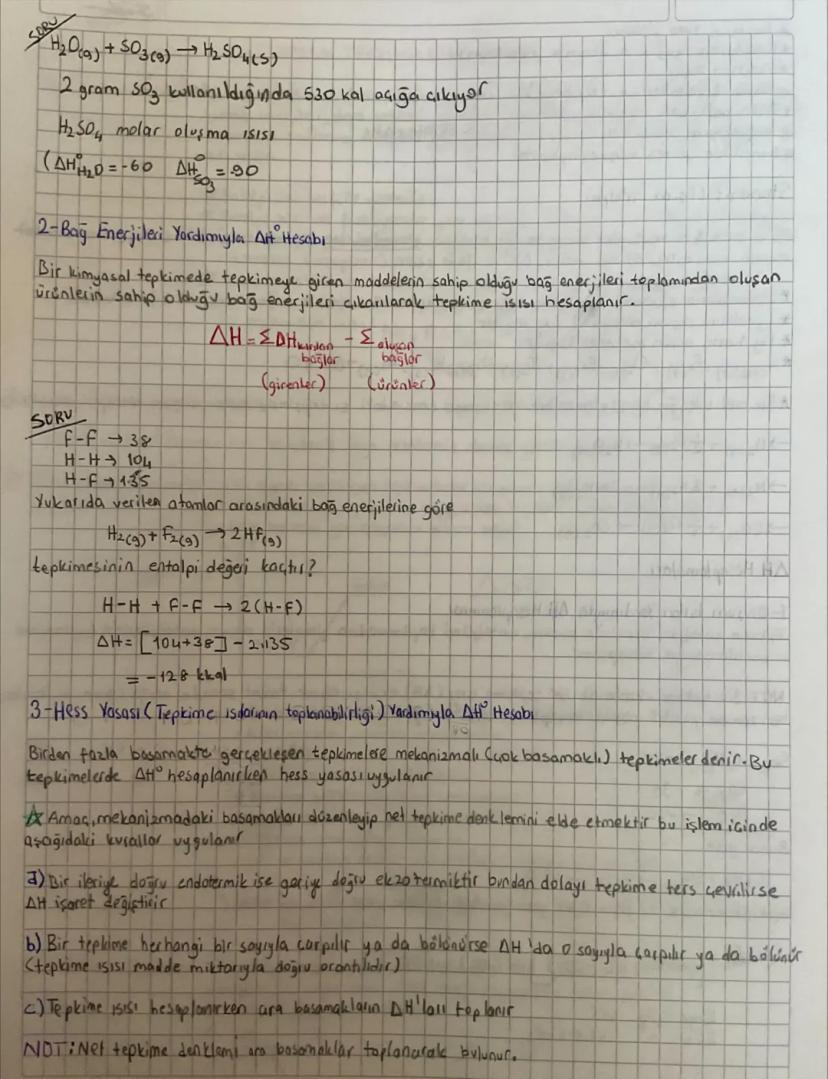 SORU
H₂O(g) + SO₃(g) → H₂SO₄(s)
2 gram SO₃ kullanıldığında 530 kal açığa çıkıyor
H₂SO₄ molar oluşma ısısı
(ΔH°H₂O = -60 ΔH°SO₃ = -90
2-Bağ Enerjileri Yardımıyla ΔH° Hesabı
Bir kimyasal tepkimede tepkimeye giren maddelerin sahip olduğu bağ enerjileri toplamından oluşan
ürünlerin sahip olduğu bağ enerjileri çıkarılarak tepkime ısısı hesaplanır.
ΔH = ΣDHkırılan bağlar - Σoluşan bağlar
(girenler) (ürünler)
SORU
F-F → 38
H-H → 104
H-F → 135
Yukarıda verilen atomlar arasındaki bağ enerjilerine göre
H₂(g) + F₂(g) → 2Hf(g)
tepkimesinin entalpi değeri kaçtır?
H-H + F-F → 2(H-F)
ΔH = [104+38] - 2.135
= -128 kkal
3-Hess Yasası (Tepkime ısılarının toplanabilirliği) Yardımıyla ΔH° Hesabı
Birden fazla basamakta gerçekleşen tepkimelere mekanizmalı (çok basamaklı) tepkimeler denir. Bu
tepkimelerde ΔH° hesaplanırken hess yasası uygulanır
☆ Amaç, mekanizmadaki basamakları düzenleyip net tepkime denklemini elde etmektir bu işlem içinde
aşağıdaki kurallar uygulanır
a) Bir ileriye doğru endotermik ise geriye doğru ekzotermiktir bundan dolayı tepkime ters çevrilirse
ΔH işaret değiştirir
b) Bir tepkime herhangi bir sayıyla çarpılır ya da bölünürse ΔH'da o sayıyla çarpılır ya da bölünür
(tepkime ısısı madde miktarıyla doğru orantılıdır)
c) Tepkime ısısı hesaplanırken ara basamakların ΔH'ları toplanır
NOT: Net tepkime denklemi ara basamaklar toplanarak bulunur.